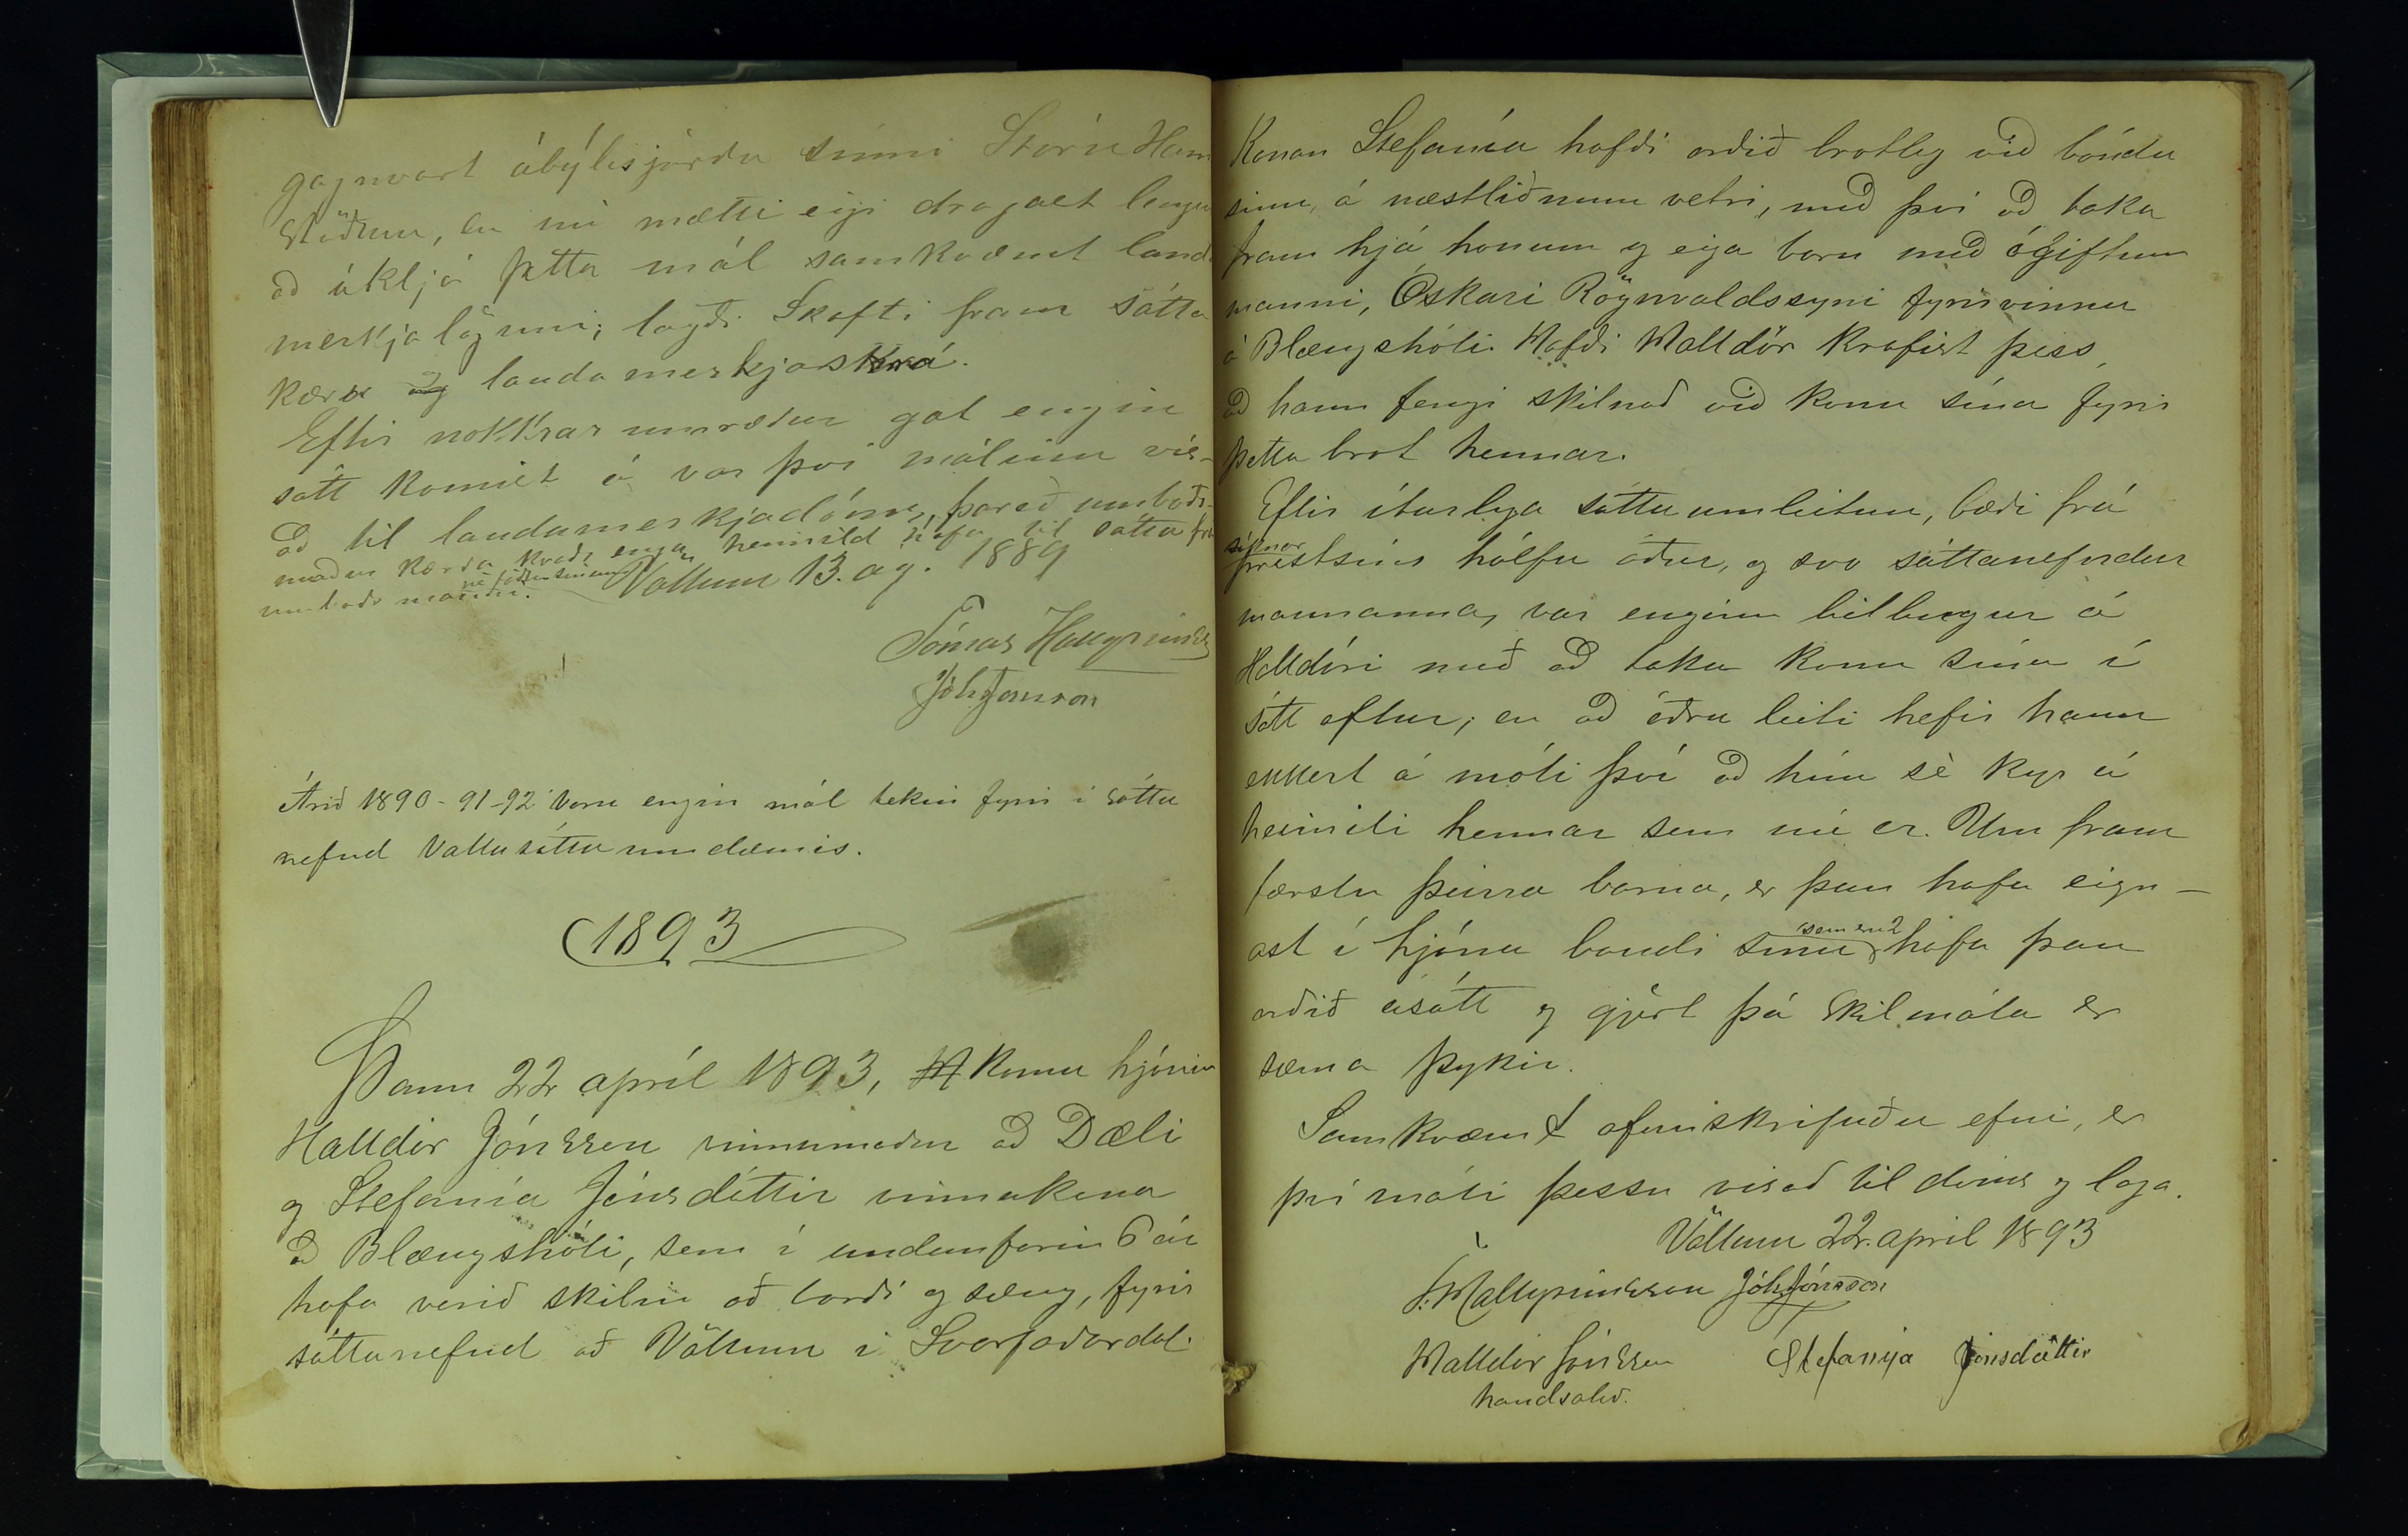 gagnvart ábýlisjörðu sinni Stóru Ham
stöðum, en nú mætti eigi dragast lengur
að útkljá þetta mál samkvæmt landa
merkjalögum; lagði Skafti fram sátta
kæru og landamerkjaskrá.
Eftir nokkrar umræður gat engin
sátt komist á var því málinu vís-
að til landamerkjadóms, þareð umboðs-
maður kærða kvaðst enga heimild hafa til sátta frá
umboðs manni né föður sínum.
Völlum 13. ag. 1889
Tómas Hallgrímss
Jóh Jónsson
Árið 1890-91-92 voru engin mál tekin fyrir í sátta
nefnd Vallasáttaumdæmis.
1893
Þann 22 apríl 1893, komu hjónin
Halldór Jónsson vinnumaður að Dæli
og Stefanía Jónsdóttir vinnukona
að Blængshóli, sem í undanfarin 6 ár
hafa verið skilin að borði og sæng, fyrir
sáttanefnd að Völlum í Svarfaðardal.
Konan Stefanía hafði orðið brotleg við bónda
sinn, á næstliðnum vetri, með því að taka
fram hjá honum og eiga barn með ógiftum
manni, Óskari Rögnvaldssyni fyrirvinnu
á Blængshóli. Hafði Halldór krafist þess,
að hann fengi skilnað við konu sína fyrir
þetta brot hennar.
Eftir ítarlega sáttaumleitun, bæði frá
sóknar
prestsins hálfu áður, og svo sáttanefndar
mannanna, var enginn bilbugur á
Halldóri með að taka konu sína í
sátt aftur; en að öðru leiti hefir hann
ekkert á móti því að hún sè kyr á
heimili hennar sem nú er. Um fram
færslu þeirra barna, er þau hafa eign-
ast í hjóna bandi sínu sem eru 2 hafa þau
orðið ásátt og gjört þá skilmála er
sæma þykir.
Samkvæmt ofanskrifuðu efni, er
því máli þessu vísað til dóms og laga.
Völlum 22. april 1893
T. Hallgrímsson Jóh Jónsson
Halldór Jónsson Stefanija Jónsdóttir
handsalað.